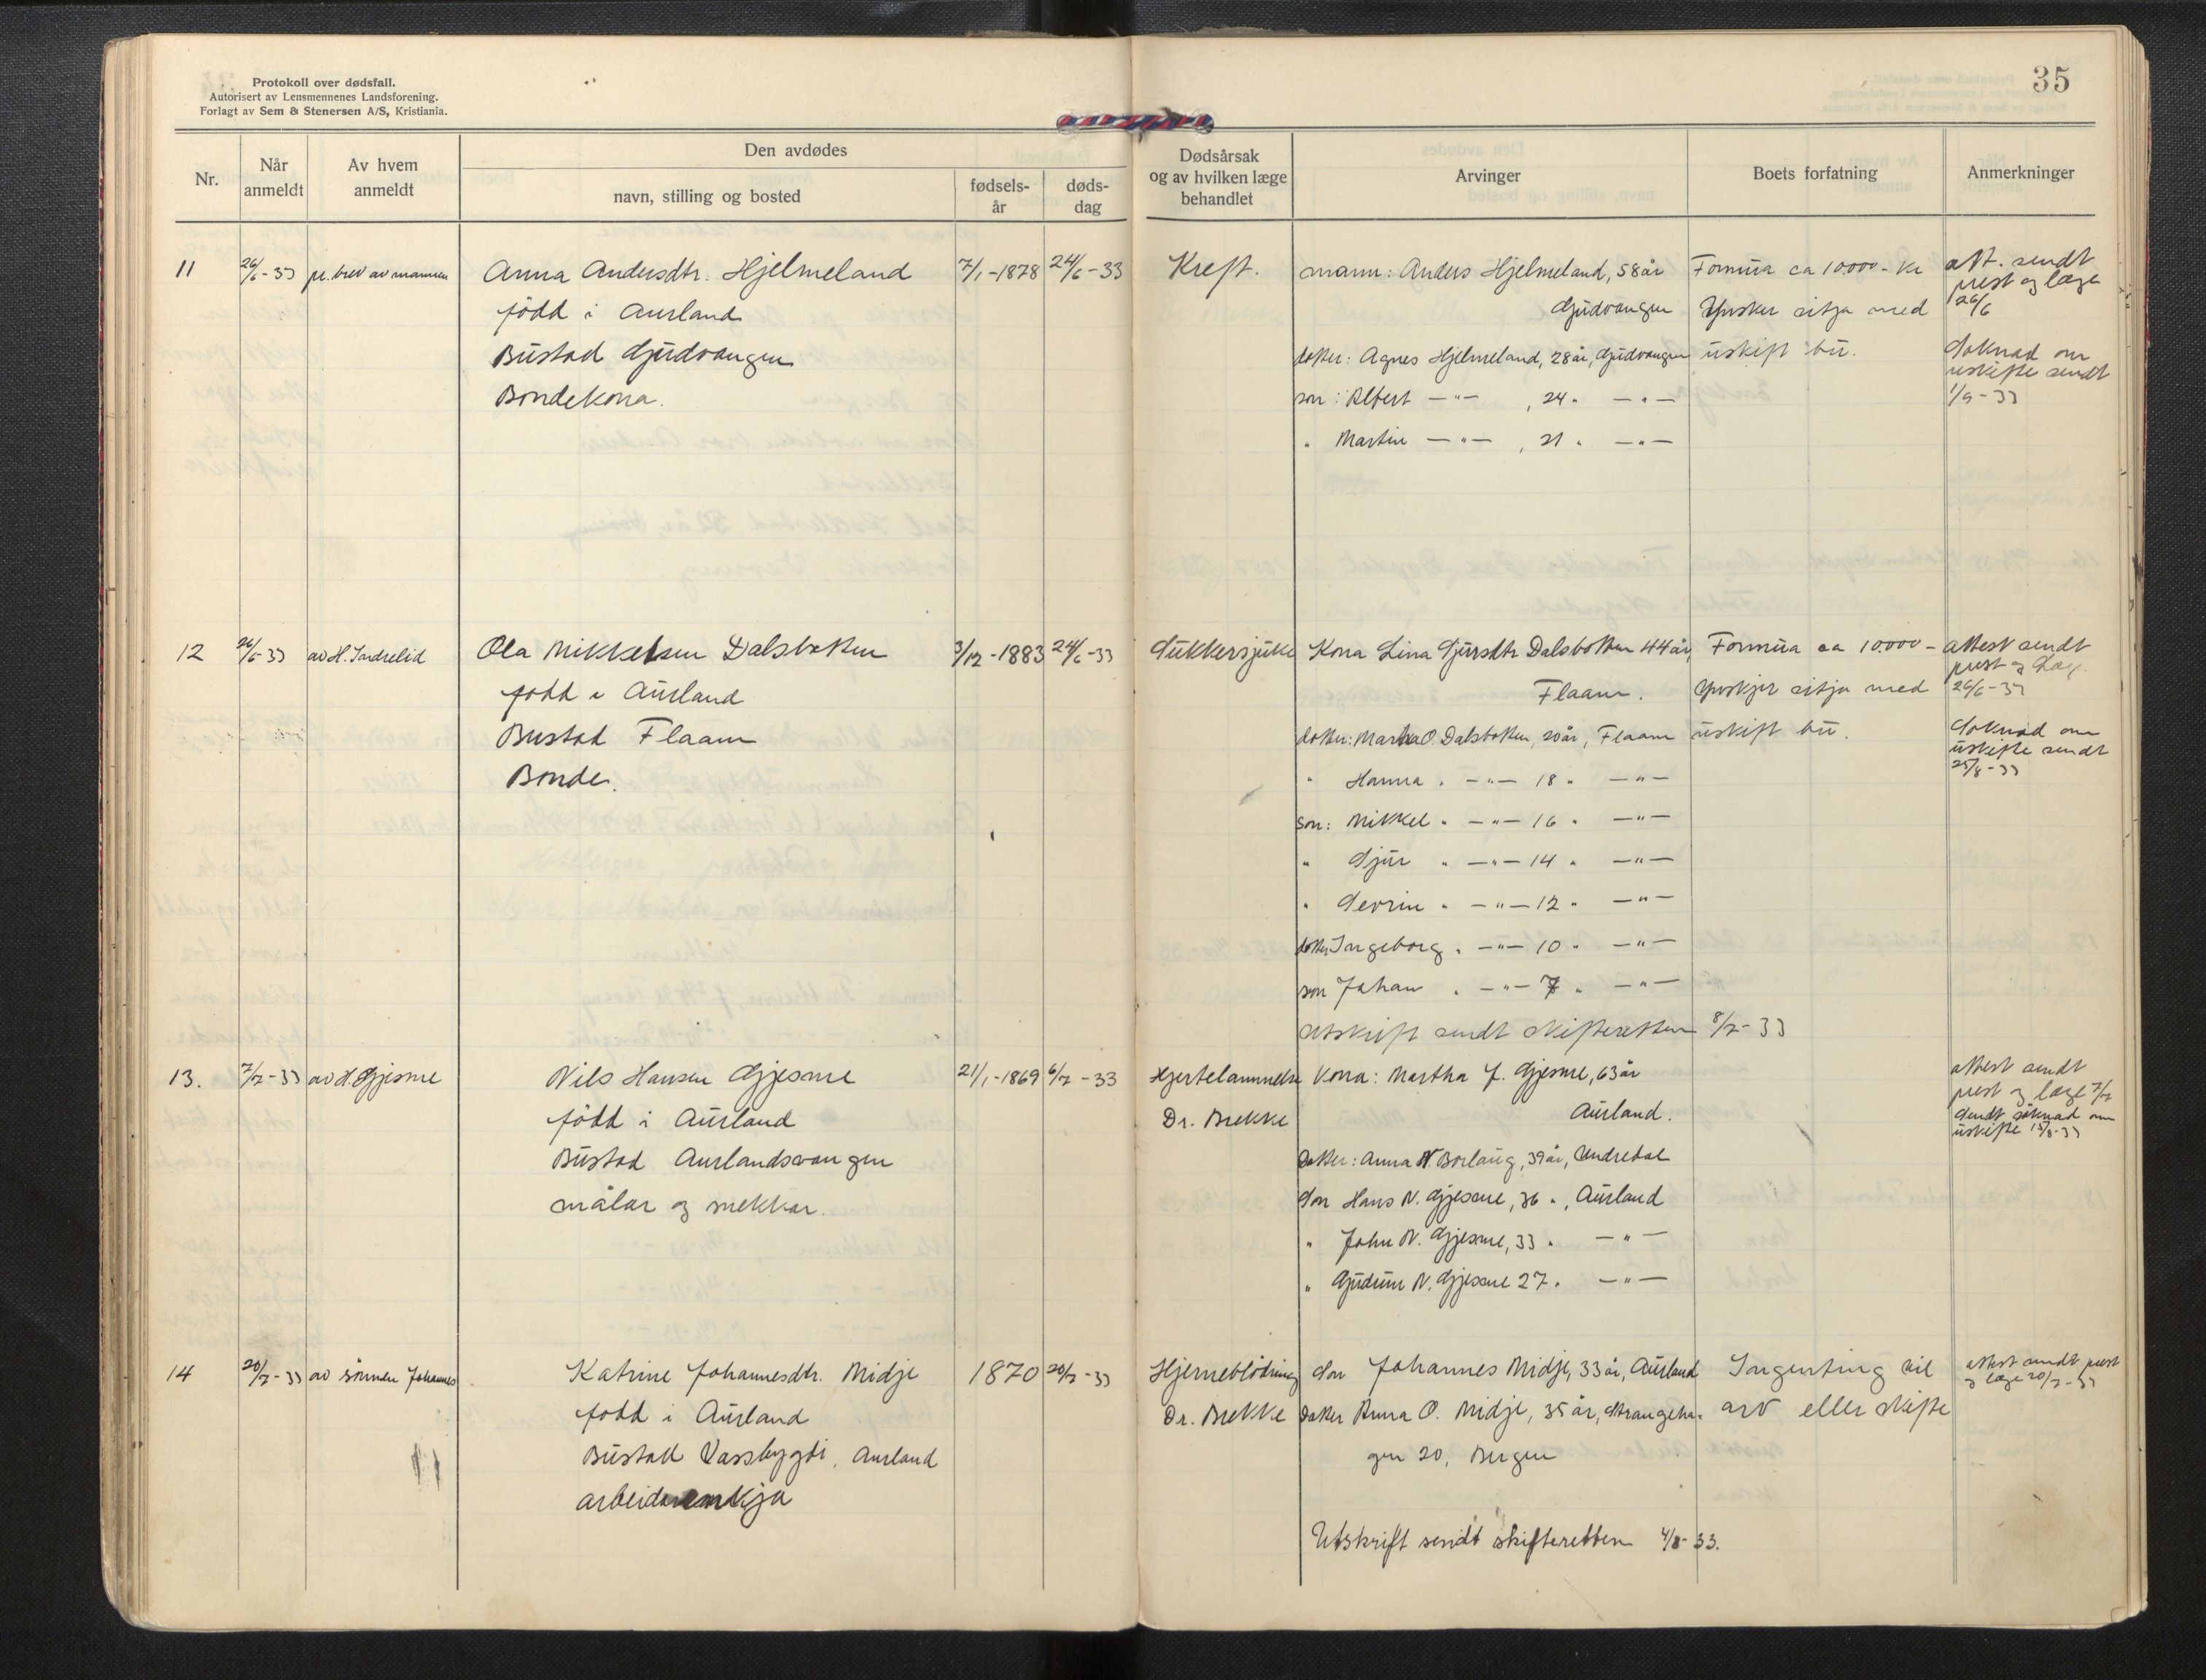 Protokoll over dødsfall.
Autorisert av Lensmennenes Landsforening.
Forlagt av Sem & Stenersen A/S, Kristiania.
35
Nr.
Når anmeldt
Av hvem anmeldt
Den avdødes
navn, stilling og bosted
fødsels-år
døds-dag
Dødsårsak og av hvilken læge behandlet
Arvinger
Boets forfatning
Anmerkninger
11 26/6-33 pr. brev av mannen
Anna Andersdtr. Hjelmeland 7/1-1878 24/6-33
född i Aurland
Bustad Gudvangen
Bondekona.
Kreft.
mann: Anders Hjelmeland, 58 år
Gudvangen
dotter: Agnes Hjelmeland, 28 år, Gudvangen
son: Albert —"— , 24 " —"—
" Martin —"— , 21 " —"—
Formua ca 10000- kr
Ynsker sitja med
uskift bu.
att. sendt
prest og læge
26/6
Söknad om
uskifte sendt
1/9-33
12 26/6-33 av H. Indrelid
Ola Mikkelsen Dalsbotten 3/12-1883 24/6-33
född i Aurland
Bustad Flaam
Bonde.
Sukkersjuke
Kona Lina Sjursdtr Dalsbotten 44 år,
Flaam.
dotter: Martha O. Dalsbotten, 20 år, Flaam
" Hanna " —"— 18 " —"—
son: Mikkel " —"— 16 " —"—
" Sjur " —"— 14 " —"—
" Severin " —"— 12 " —"—
dotter Ingeborg " —"— 10 " —"—
son Johan " —"— 7 " —"—
Utskrift sendt skifteretten 8/7-33
Formua ca 10.000-
Ynskjer sitja med
uskift bu.
attest sendt
prest og læge
26/6-33
Söknad om
uskifte sendt
25/8-33
13. 7/7-33 av H. Gjesme
Nils Hansen Gjesme 21/1-1869 6/7-33
född i Aurland
Bustad Aurlandsvangen
målar og snekkar.
Hjertelammelse
Dr. Brekke
Kona: Martha J. Gjesme, 63 år
Aurland.
Dotter: Anna N. Borlaug, 39 år, Undredal
Son Hans N. Gjesme, 36 ", Aurland
" John N. Gjesme, 33 " —"—
" Gudum N. Gjesme 27 " —"—
attest sendt
prest og læge 7/7
Sendt söknad om
uskifte 15/8-33
14 20/7-33 av sönnen Johannes
Katrine Johannesdtr. Midje 1870 20/7-33
född i Aurland
Bustad Vassbygdi, Aurland
arbeidarenkja
Hjerneblödning
Dr. Brekke
Son Johannes Midje, 33 år, Aurland
Dotter Anna O. Midje, 35 år, Strangeha-
gen 20, Bergen
Utskrift sendt skifteretten 4/8-33.
Ingenting til
arv eller skifte
attest sendt prest
og læge 20/7-33